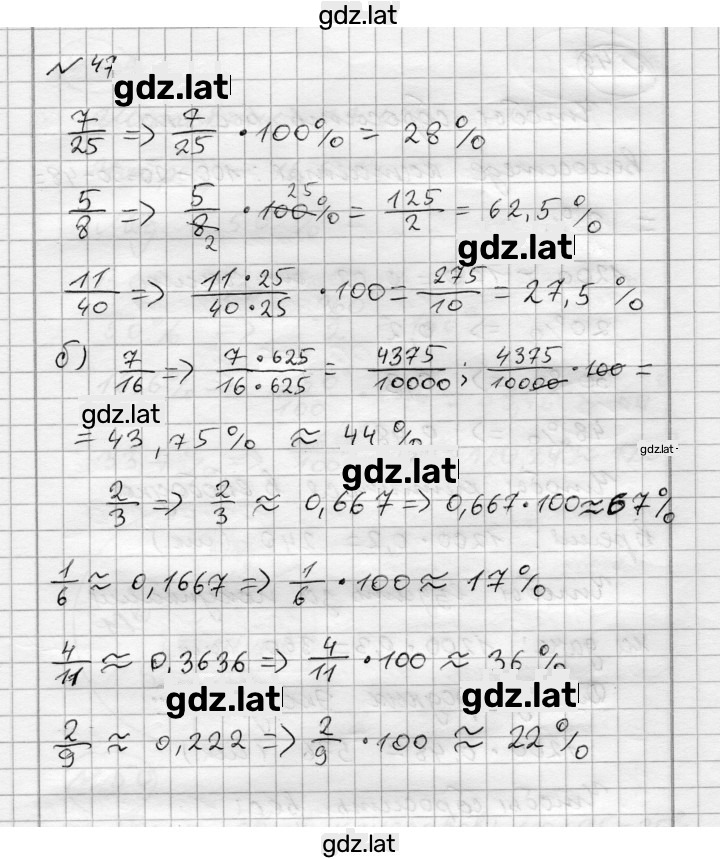 gdz.lat
№ 47
gdz.lat
7/25 => 7/25 · 100% = 28%
5/8 => 5/8 2 · 100 25 % = 125/2 = 62,5%
gdz.lat
11/40 => 11·25/40·25 · 100 = 275/10 = 27,5 %
б) 7/16 => 7·625/16·625 = 4375/10000 ; 4375/10000 · 100 =
gdz.lat
= 43,75% ≈ 44%
gdz.lat
gdz.lat
2/3 => 2/3 ≈ 0,667 => 0,667·100 ≈ 67%
1/6 ≈ 0,1667 => 1/6 · 100 ≈ 17%
4/11 ≈ 0,3636 => 4/11 · 100 ≈ 36%
gdz.lat
gdz.lat
2/9 ≈ 0,222 => 2/9 · 100 ≈ 22%
gdz.lat